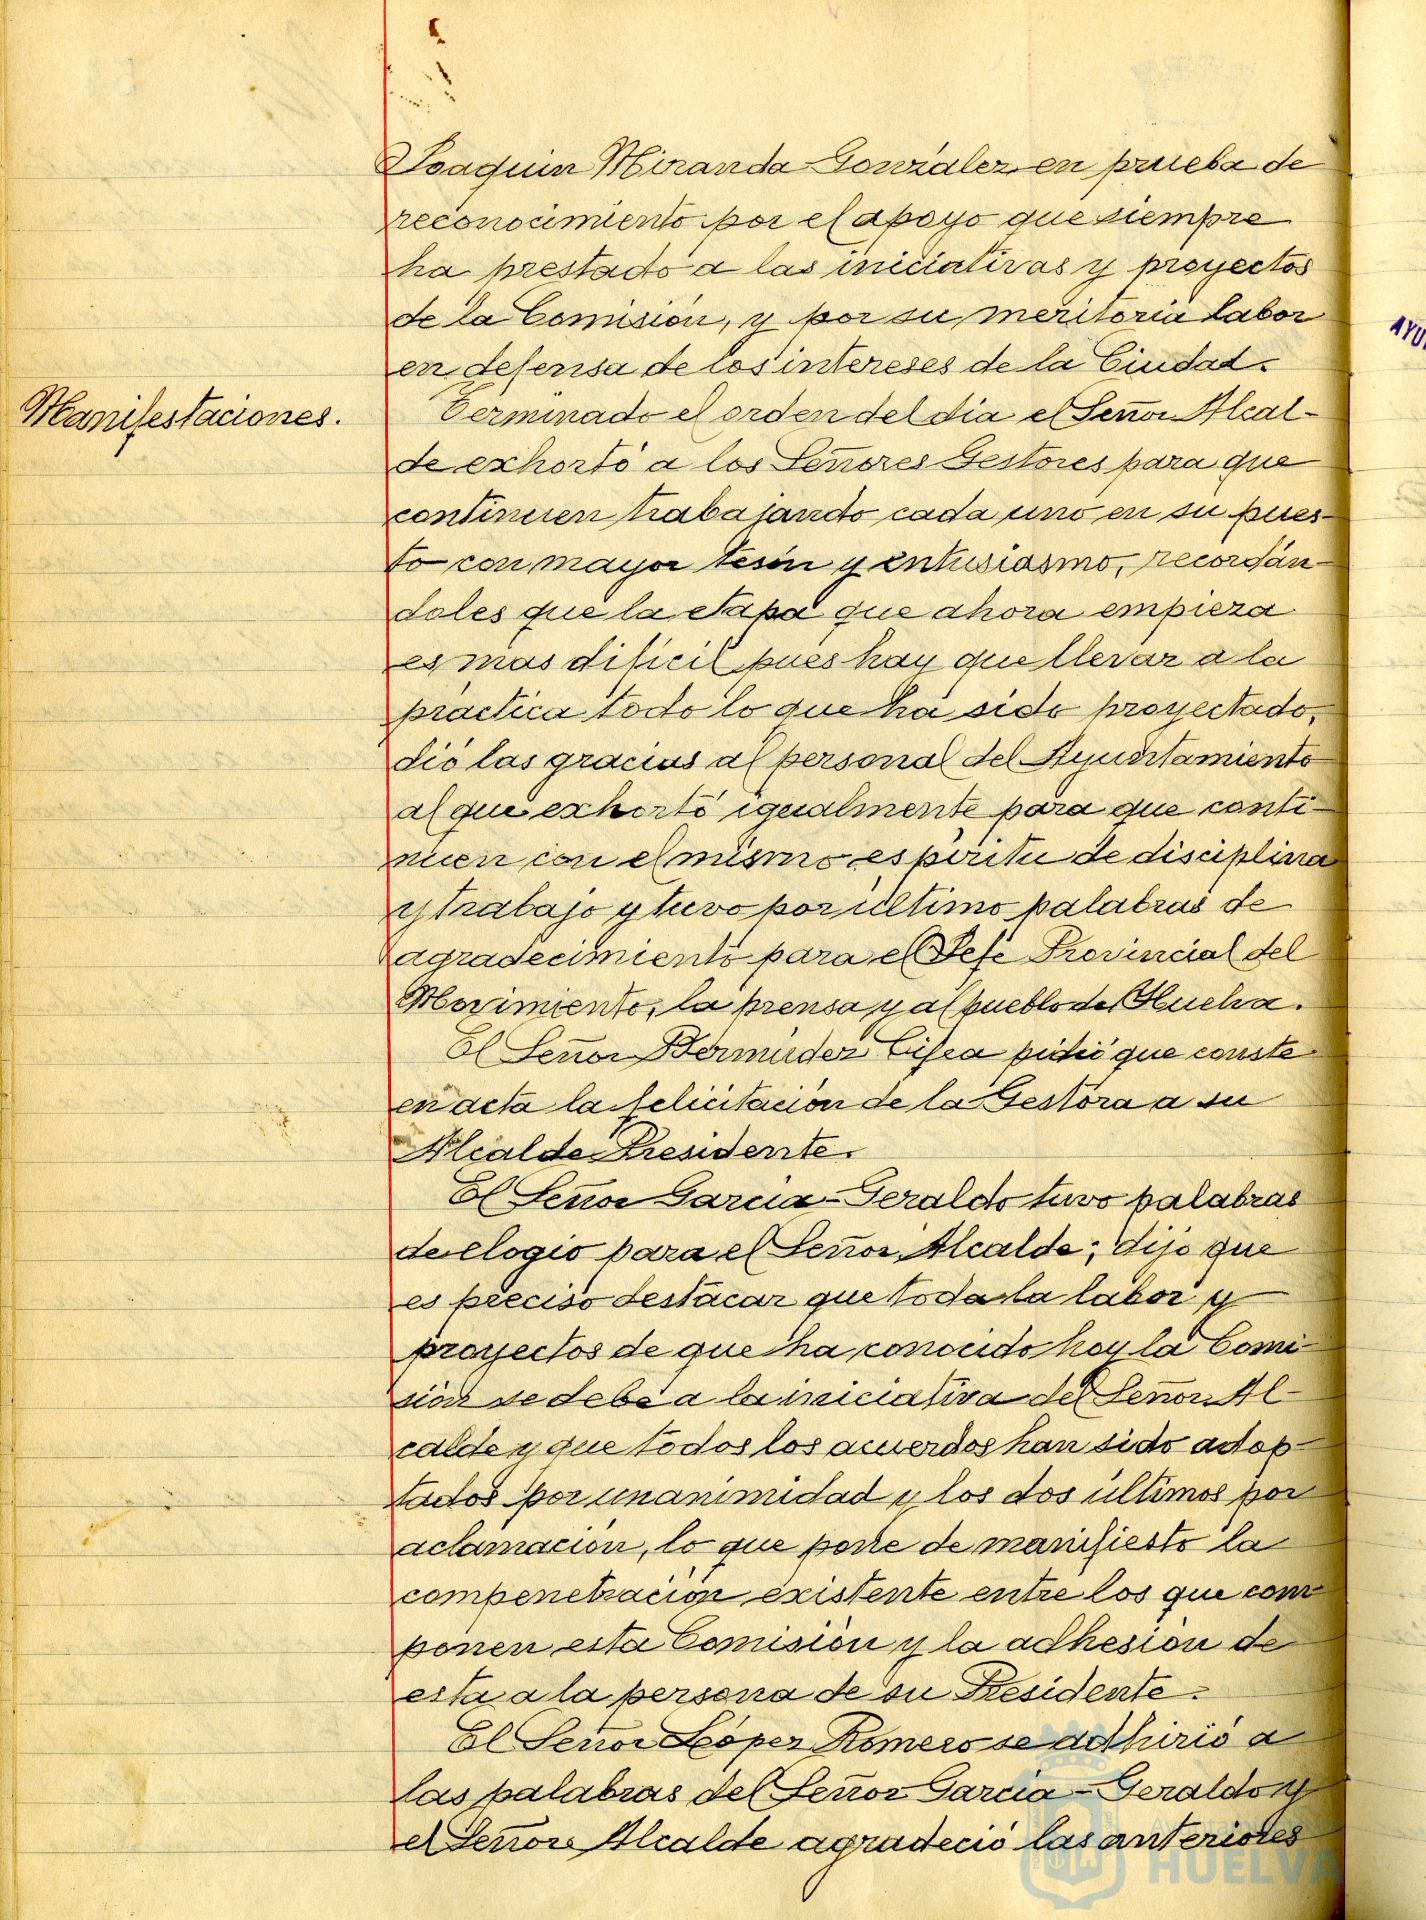 Joaquin Miranda González en prueba de
reconocimiento por el apoyo que siempre
ha prestado a las iniciativas y proyectos
de la Comisión, y por su meritoria labor
en defensa de los intereses de la Ciudad.
Manifestaciones.
Terminado el orden del dia el Señor Alcal-
de exhortó a los Señores Gestores para que
continuen trabajando cada uno en su pues-
to con mayor tesón y entusiasmo, recordán-
doles que la etapa que ahora empieza
es mas difícil pues hay que llevar a la
practica todo lo que ha sido proyectado,
dió las gracias al personal del Ayuntamiento
al que exhortó igualmente para que conti-
nuen con el mismo espíritu de disciplina
y trabajo y tuvo por último palabras de
agradecimiento para el Jefe Provincial del
Movimiento, la prensa y al pueblo de Huelva.
El Señor Bermudez Cifea pidió que conste
en acta la felicitación de la Gestora a su
Alcalde Presidente.
El Señor Garcia-Geraldo tuvo palabras
de elogio para el Señor Alcalde; dijo que
es preciso destacar que toda la labor y
proyectos de que ha conocido hoy la Comi-
sión se debe a la iniciativa del Señor Al-
calde y que todos los acuerdos han sido adop-
tados por unanimidad y los dos últimos por
aclamación, lo que pone de manifiesto la
compenetración existente entre los que com-
ponen esta Comisión y la adhesión de
esta a la persona de su Presidente.
El Señor López Romero se adhirió a
las palabras del Señor Garcia-Geraldo y
el Señor Alcalde agradeció las anteriores
AYU
HUELVA